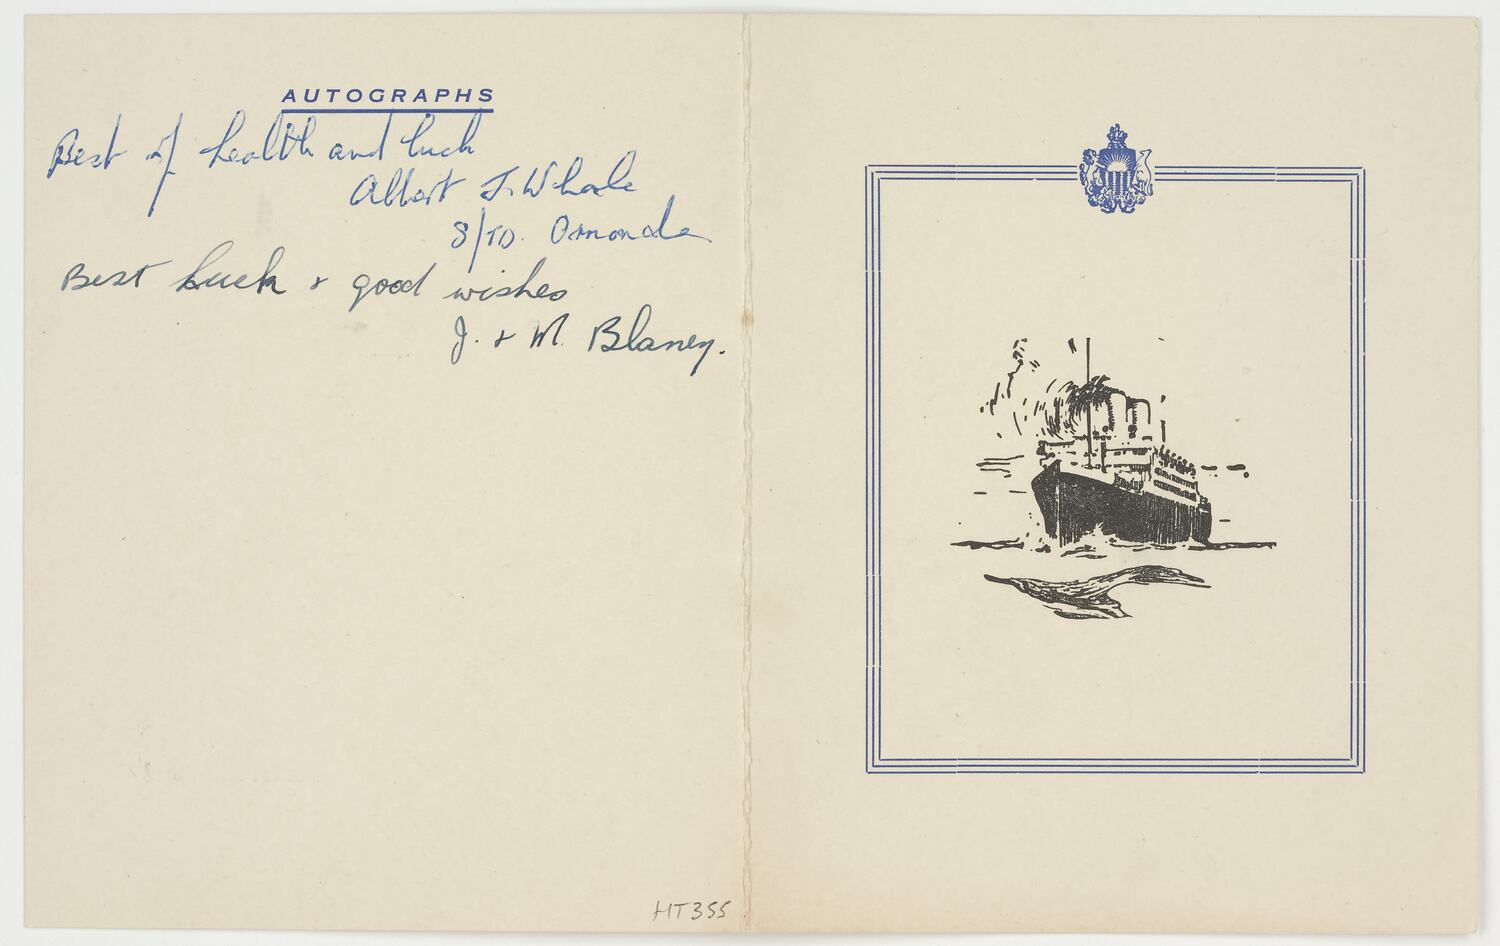 AUTOGRAPHS
Best of health and luck
Albert J. Whale
S/TD. Ormonde
Best luck + good wishes
J. + M. Blaney.
HT355